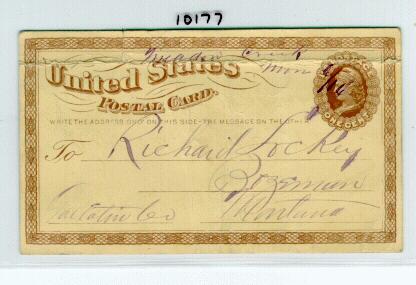 10177
Meadow Creek
Mon T
United States
Postal Card.
WRITE THE ADDRESS ONLY ON THIS SIDE-THE MESSAGE ON THE OTHER
To Richard Lockey
Bozeman
Gallatin Co Montana